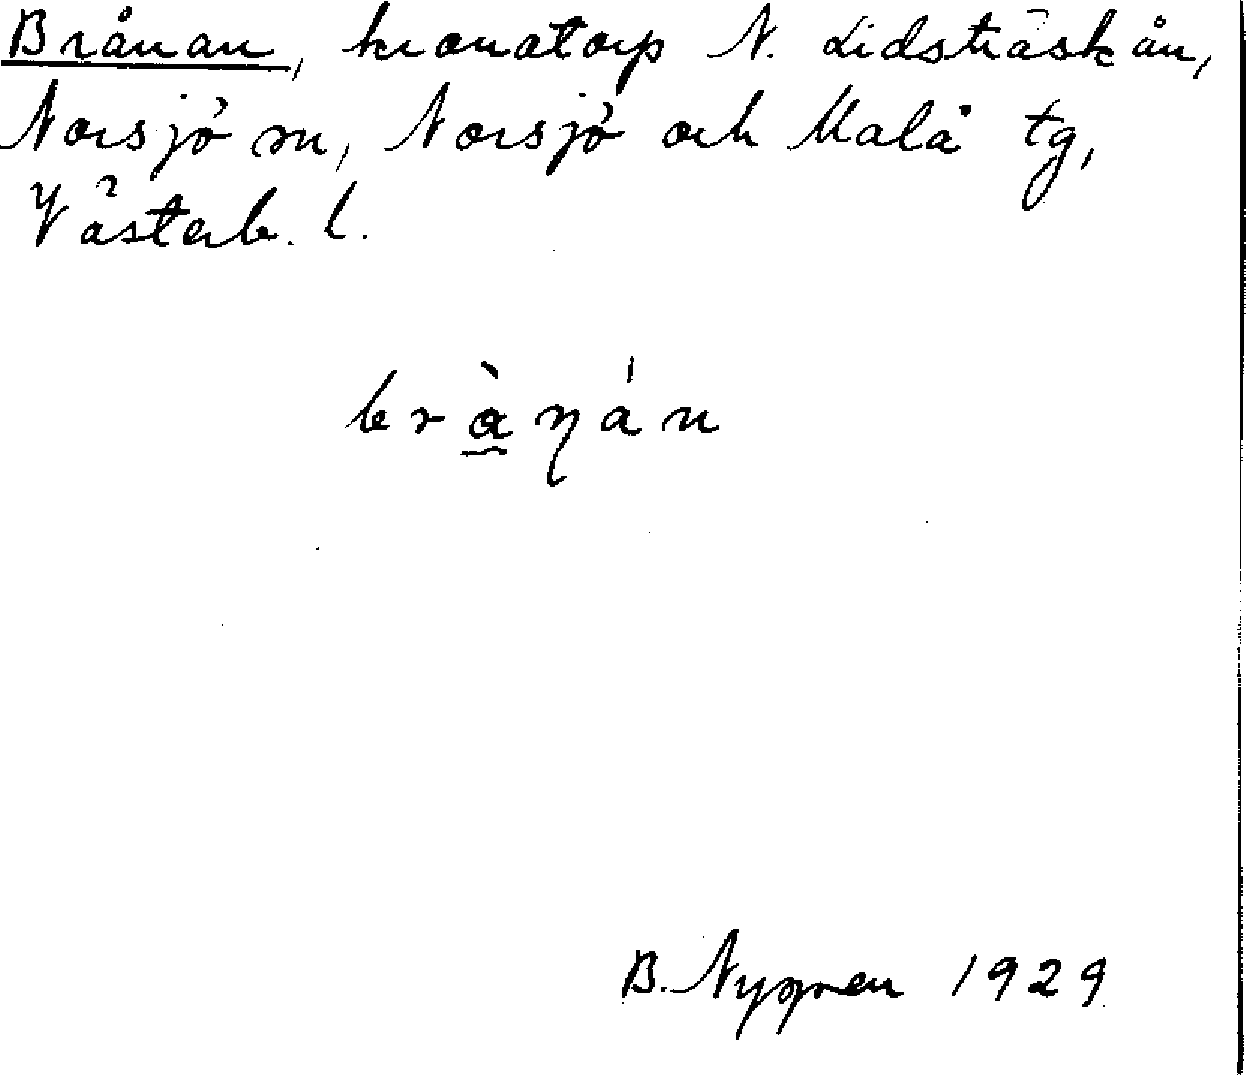 Brånan, kronatorp N. Lidsträskån,
Norsjö sn, Norsjö och Malå tg,
Västerb. l.
bràŋán
B. Nygren 1929